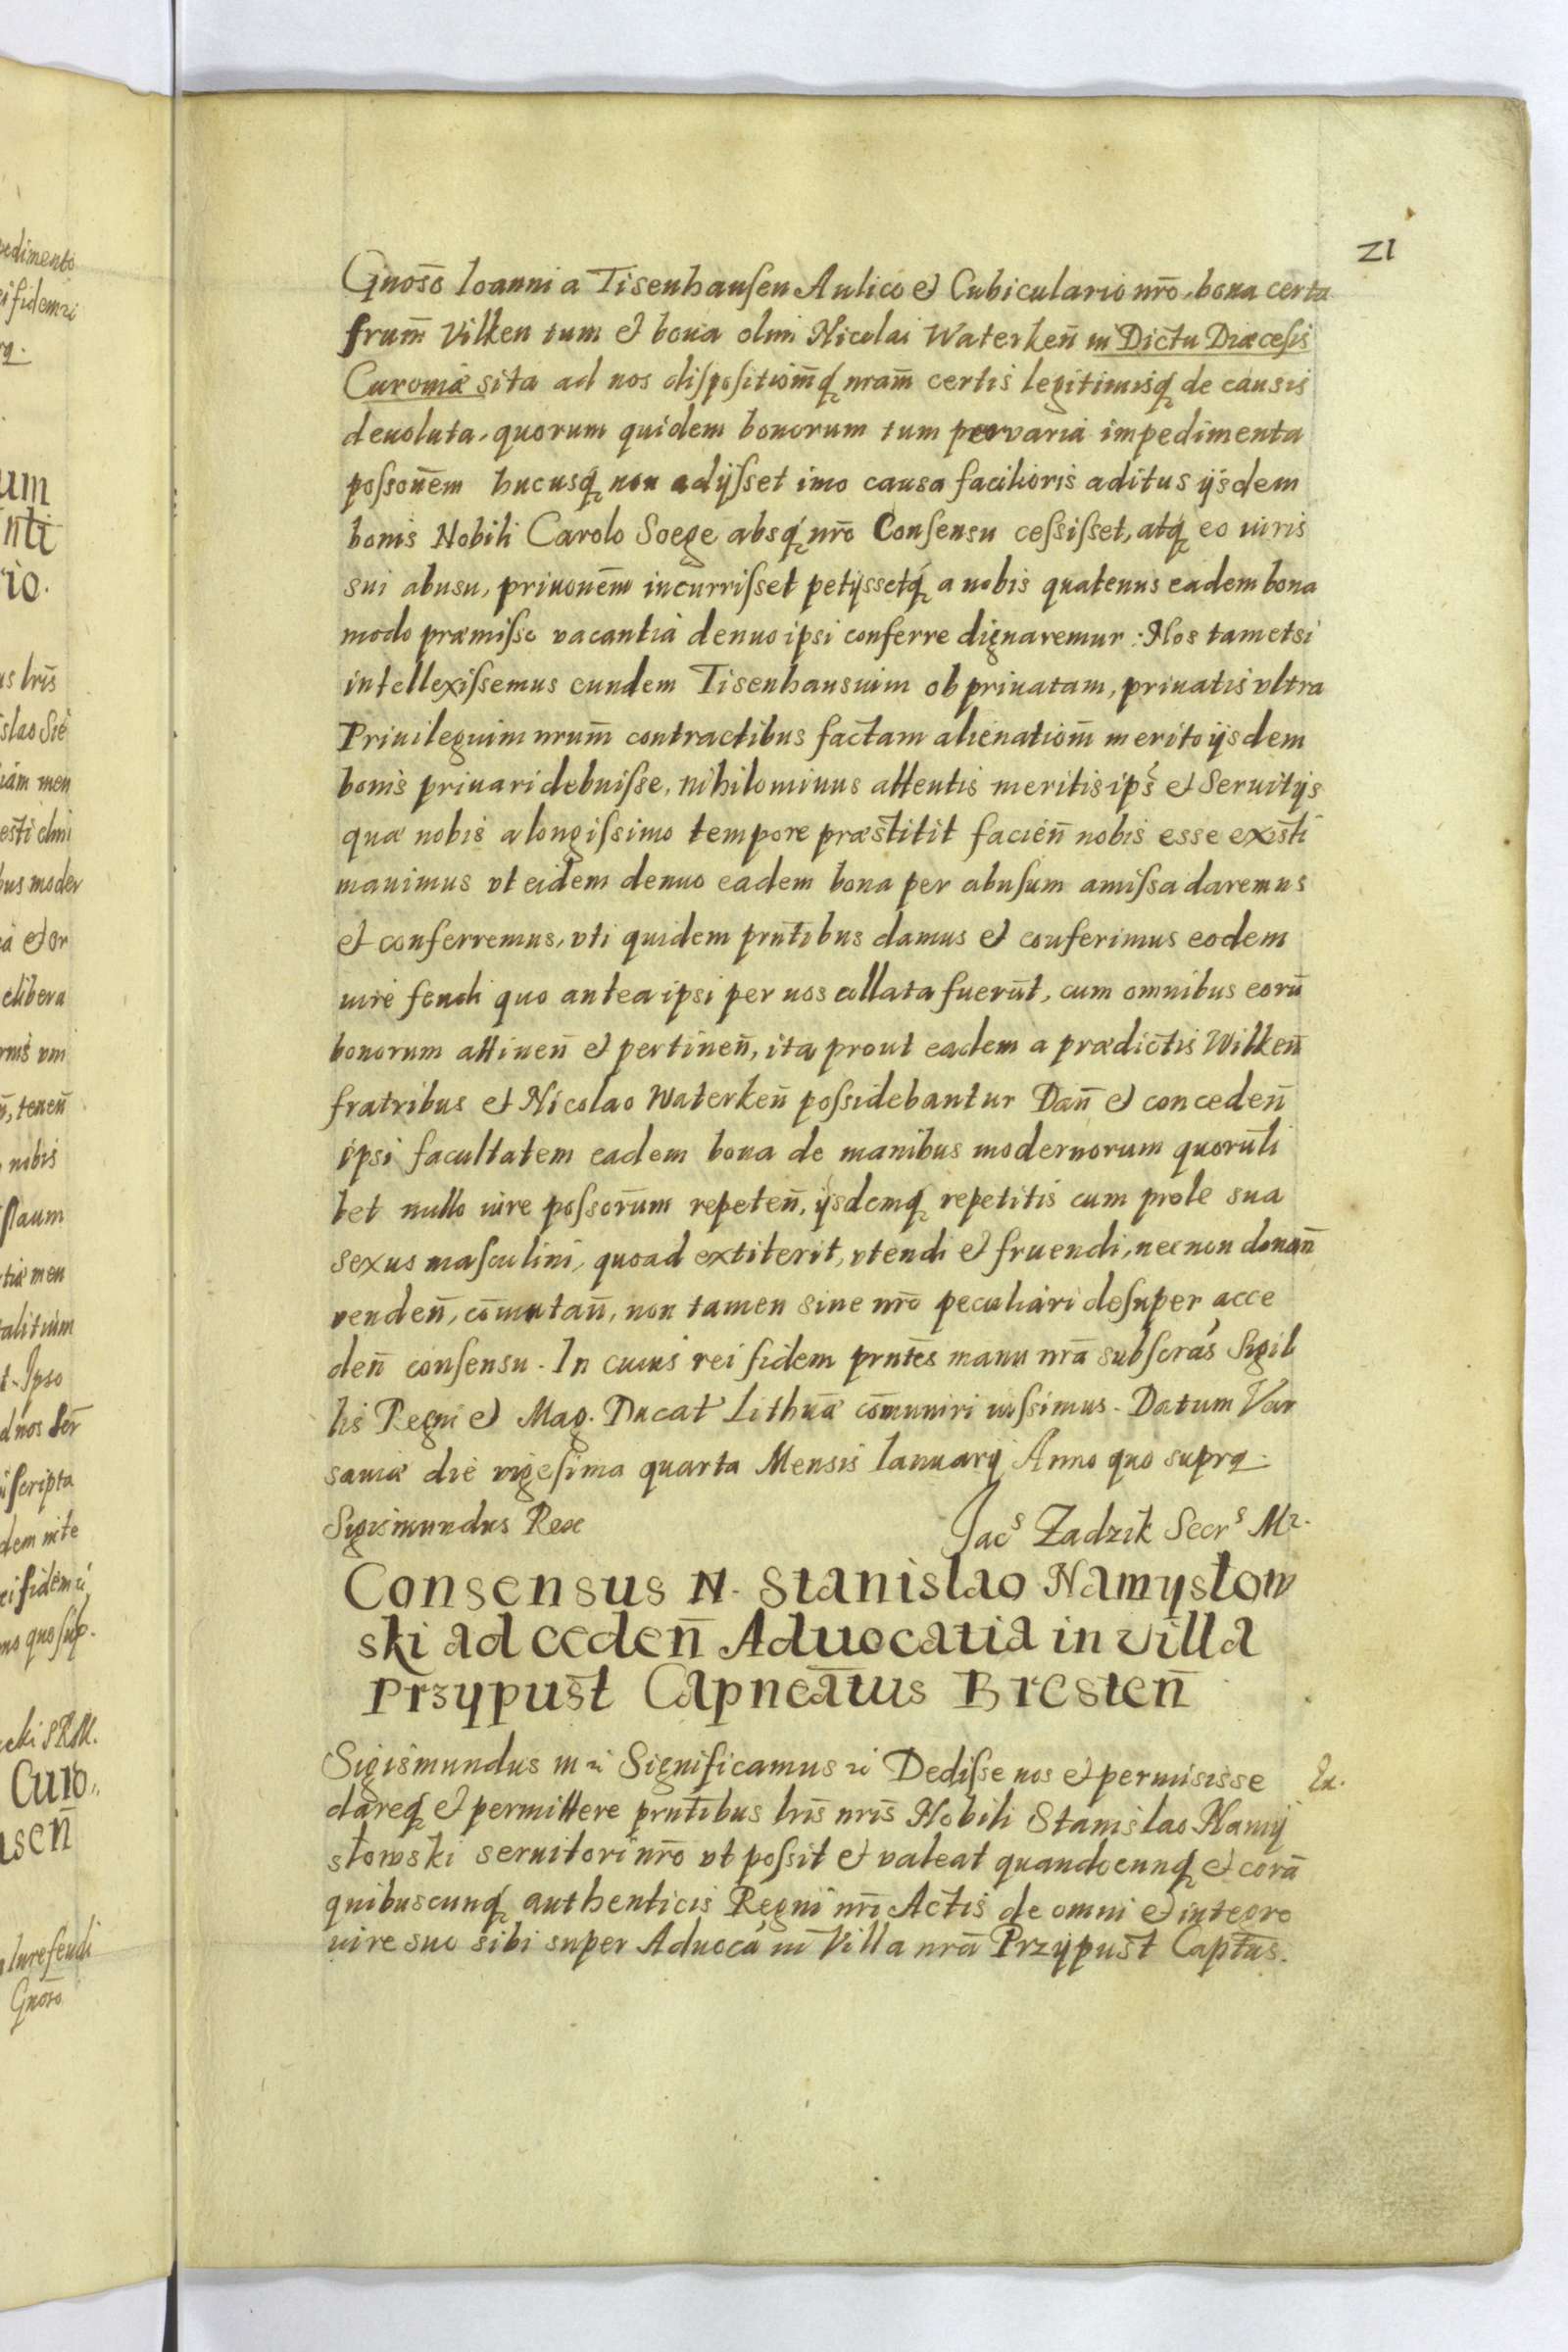 21
Gnoso Ioanni a Tisenhausen Aulico et Cubiculario nro, bona certa
frum̄ Vilken tum et bona olim Nicolai Waterkeñ in Dictu Diæcesis
Curoniæ sita ad nos dispositiom̄q nram̄ certis legitimisq de causis
deuoluta, quorum quidem bonorum tum per varia impedimenta
possonēm hucusq non adijsset imo causa facilioris aditus ijsdem
bonis Nobili Carolo Soege absq nrō Consensu cessisset, atq eo iuris
sui abusu, priuonēm incurrisset petijssetq a nobis quatenus eadem bona
modo præmisso vacantia denuo ipsi conferre dignaremur: Nos tametsi
intellexissemus eundem Tisenhausium ob priuatam, priuatis vltra
Priuilegium nrum̄ contractibus factam alienatiom̄ merito ijsdem
bonis priuari debuisse, nihilominus attentis meritis ips̄ et Seruitijs
quæ nobis a longissimo tempore præstitit facieñ nobis esse existi
mauimus vt eidem denuo eadem bona per abusum amissa daremus
et conferremus, vti quidem prntibus damus et conferimus eodem
iure feudi quo antea ipsi per nos collata fuerūt, cum omnibus eorū
bonorum attineñ et pertineñ, ita prout eadem a prædictis Wilkeñ
fratribus et Nicolao Waterkeñ possidebantur Dañ et concedeñ
ipsi facultatem eadem bona de manibus modernorum quorūli
bet nullo iure possorūm repeteñ, ijsdemq repetitis cum prole sua
sexus masculini, quoad extiterit, vtendi et fruendi, nec non donañ
vendeñ, com̄utañ, non tamen sine nrō peculiari desuper acce
deñ consensu. In cuius rei fidem prntēs manu nrā subscrás Sigil
lis Regni et Mag. Ducat Lithuæ com̄uniri iussimus. Datum Var
sauiæ die vigesima quarta Mensis Ianuarij Anno quo supra.
Sigismundus Rex
Jacˢ Zadzik Secrˢ Mr.
Consensus N. Stanislao Namysłow
ski ad cedeñ Aduocatia in villa
Przypust Capneātus Bresteñ
Sigismundus III Significamus Dedisse nos et permisisse
Ex.
dareq et permittere prntibus lris nris Nobili Stanislao Namy
słowski seruitori nrō vt possit et valeat quandocunq et corā
quibuscunq authenticis Regni nrī Actis de omni et integro
iure suo sibi super Aduocá in Villa nrā Przypust Captūs.
pedimento
fidem
um
nti
rio.
us lris
slao Sie
iam men
esti elmi
bus moder
a et or
elibera
ñ, teneñ
nobis
staum
tiæ men
talitium
t. Ipso
d nos ser
scripta
dem nite
ei fidem
no quo sup.
cki SRM.
Curo
señ
Iure feudi
Gnoso